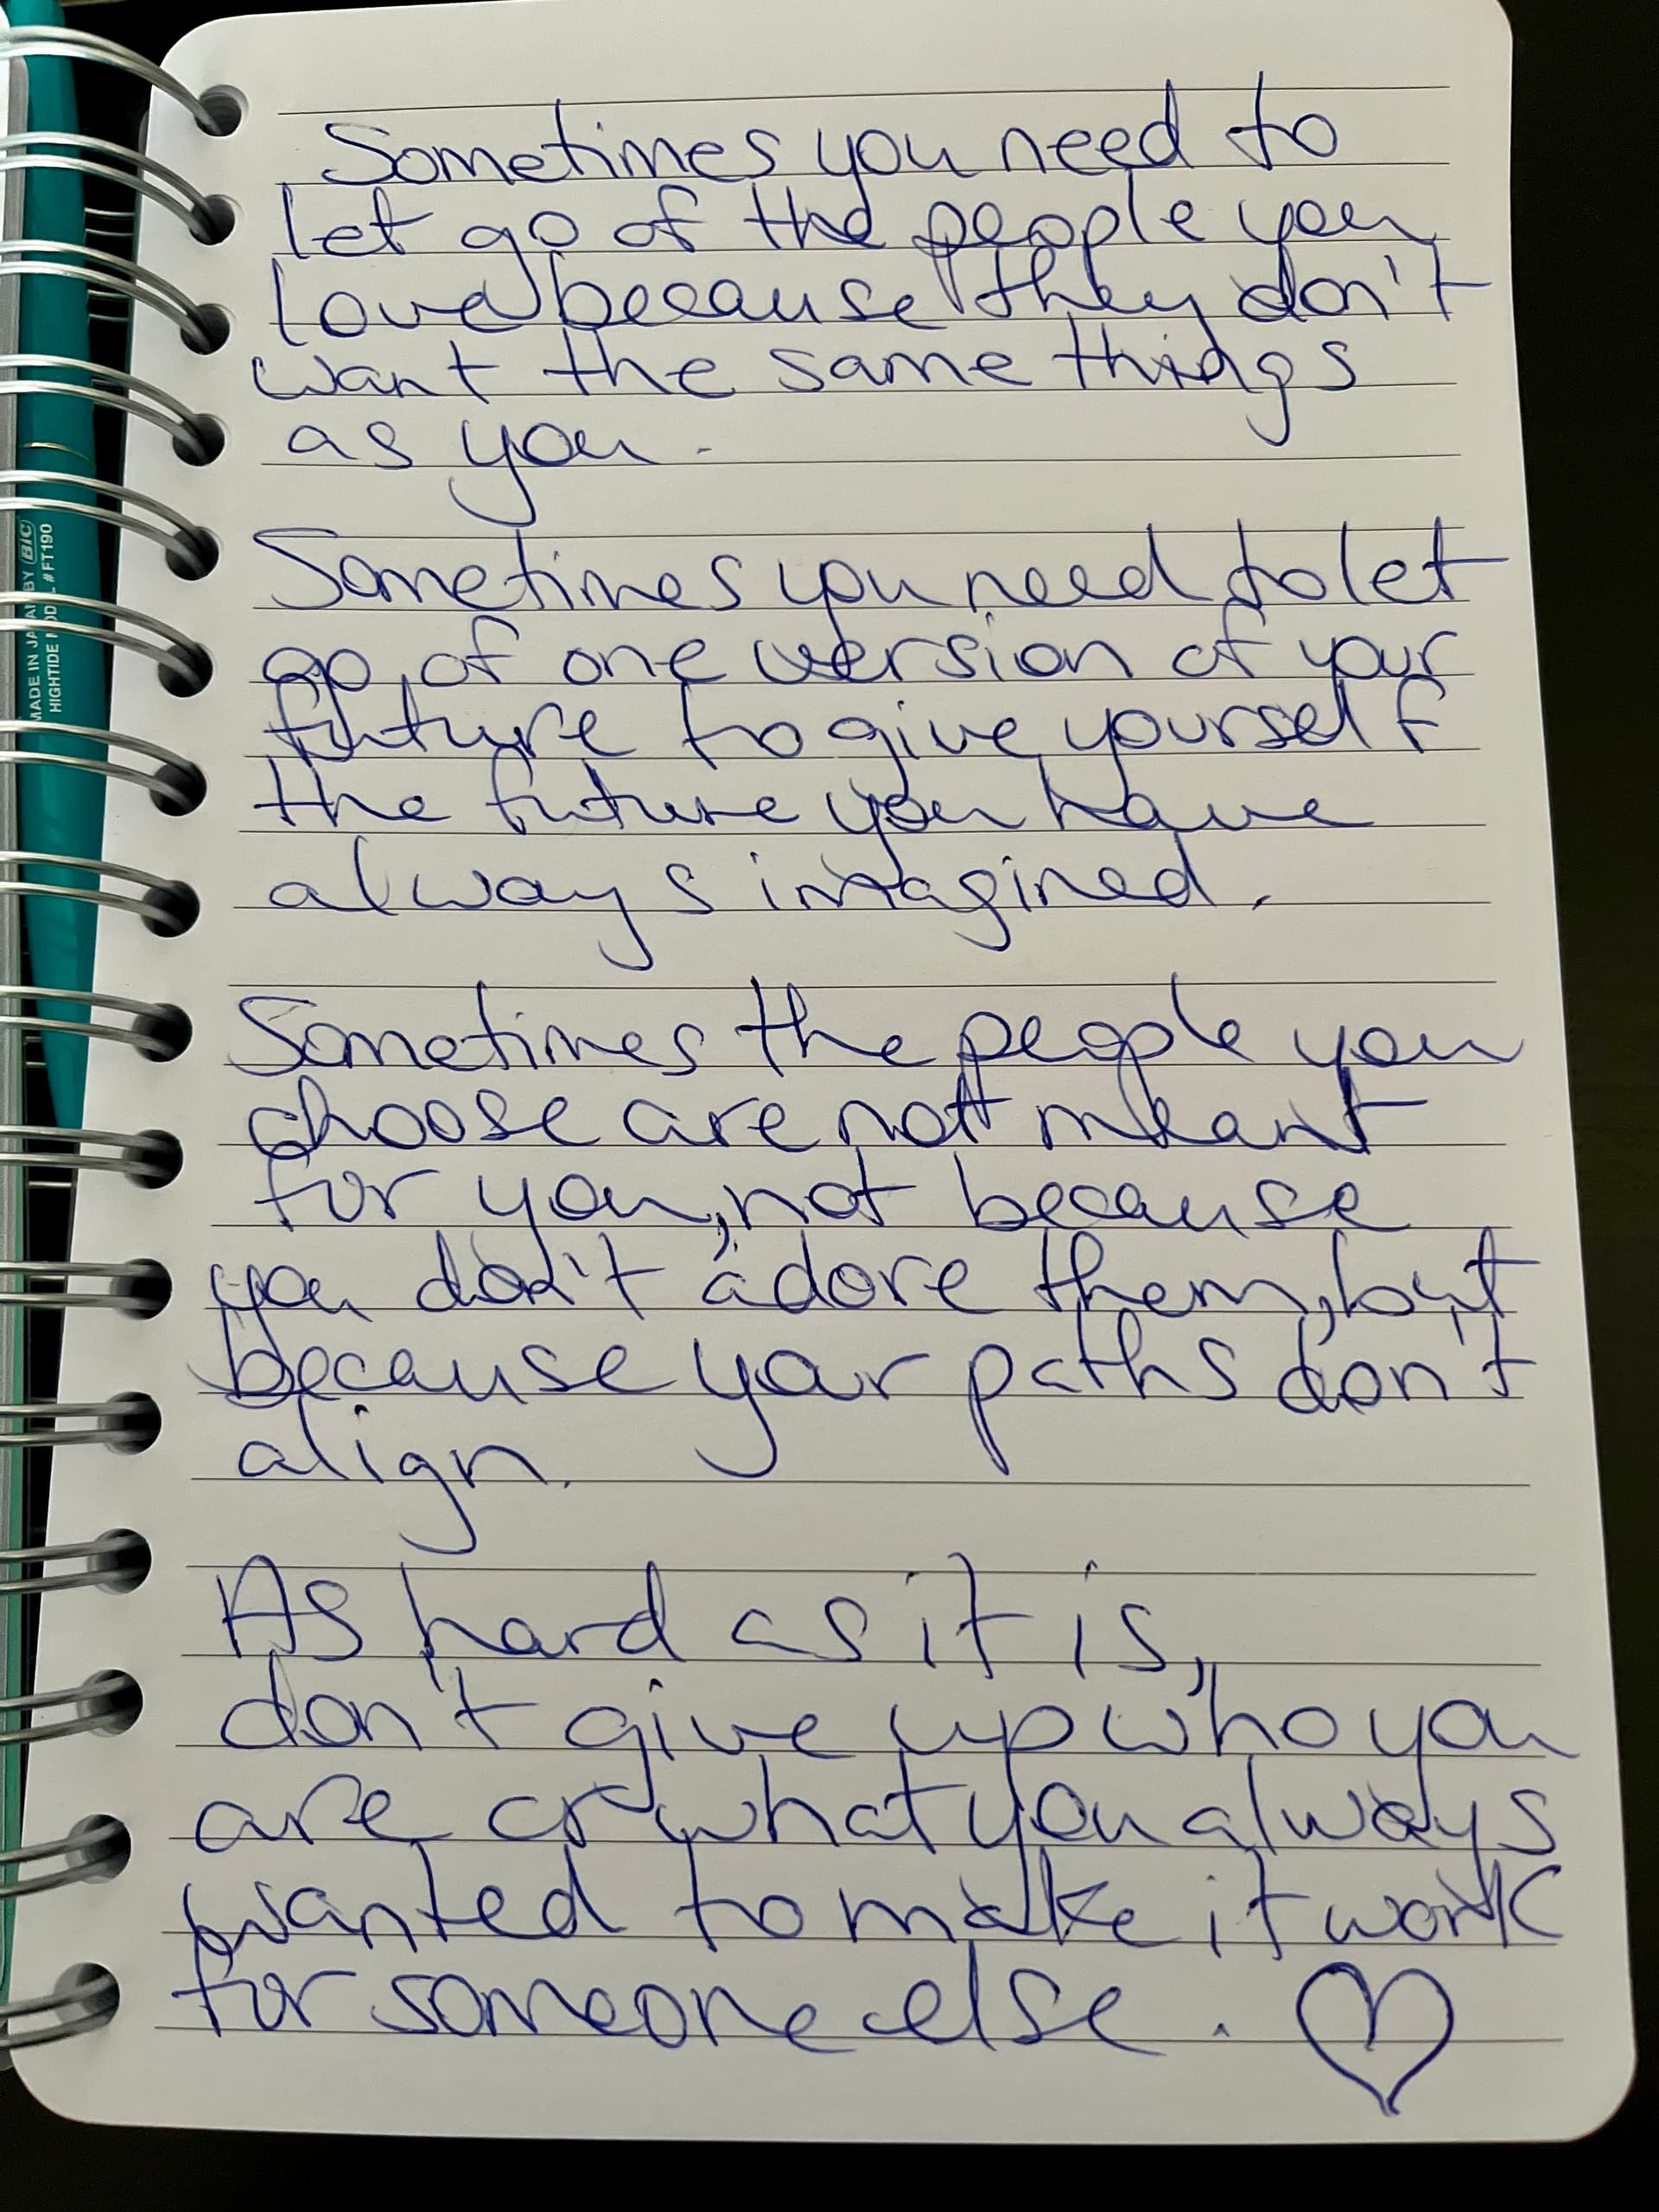 Sometimes you need to
let go of the people you
love because they don't
want the same things
as you.
Sometimes you need to let
go of one version of your
future to give yourself
the future you have
always imagined.
Sometimes the people you
choose are not meant
for you, not because
you don't adore them, but
because your paths don't
align.
As hard as it is,
don't give up who you
are or what you always
wanted to make it work
for someone else.
MADE IN JAPAN BY BIC
HIGHTIDE MODEL #FT190